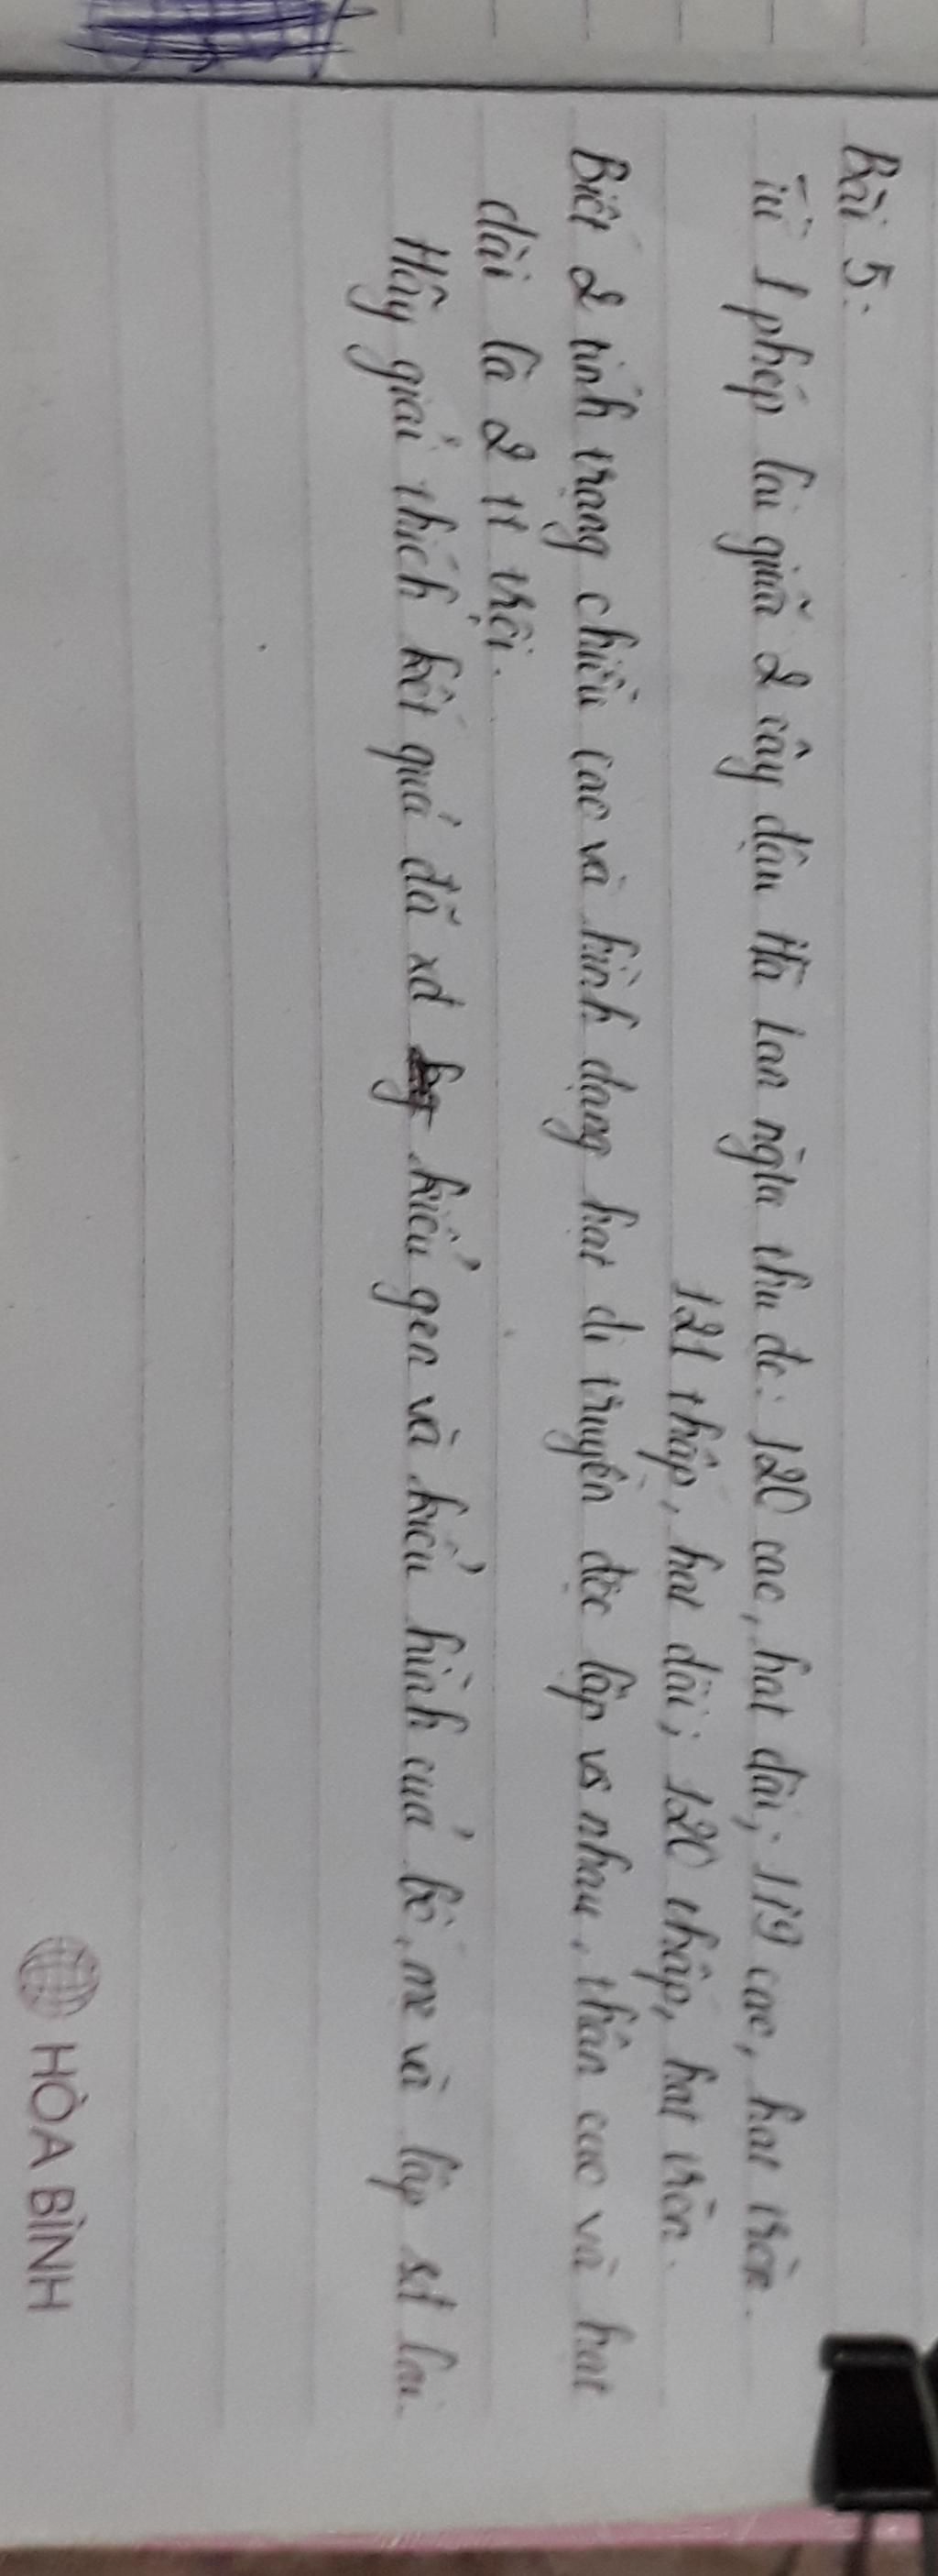 Bài 5:
Từ 1 phép lai giữa 2 cây đậu Hà Lan ngta thu đc: 120 cao, hạt dài; 119 cao, hạt tròn.
121 thấp, hạt dài; 120 thấp, hạt tròn.
Biết 2 tính trạng chiều cao và hình dạng hạt di truyền độc lập vs nhau, thân cao và hạt
dài là 2 tt trội.
Hãy giải thích kết quả đã xđ kiểu gen và kiểu hình của bố, mẹ và lập sđ lai.
HÒA BÌNH